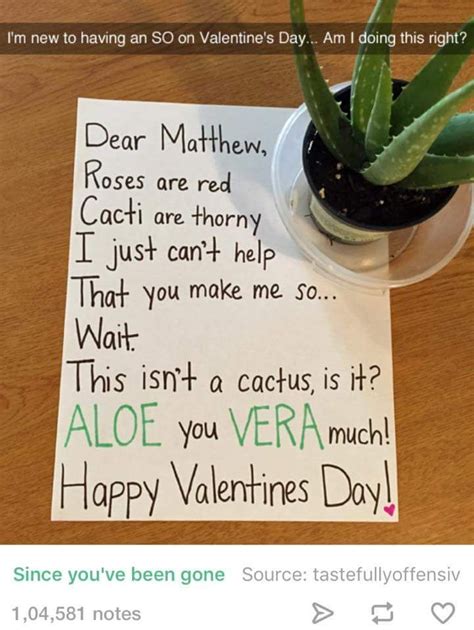 I'm new to having an SO on Valentine's Day... Am I doing this right?
Dear Matthew,
Roses are red
Cacti are thorny
I just can't help
That you make me so...
Wait.
This isn't a cactus, is it?
ALOE you VERA much!
Happy Valentines Day!
Since you've been gone Source: tastefullyoffensiv
1,04,581 notes